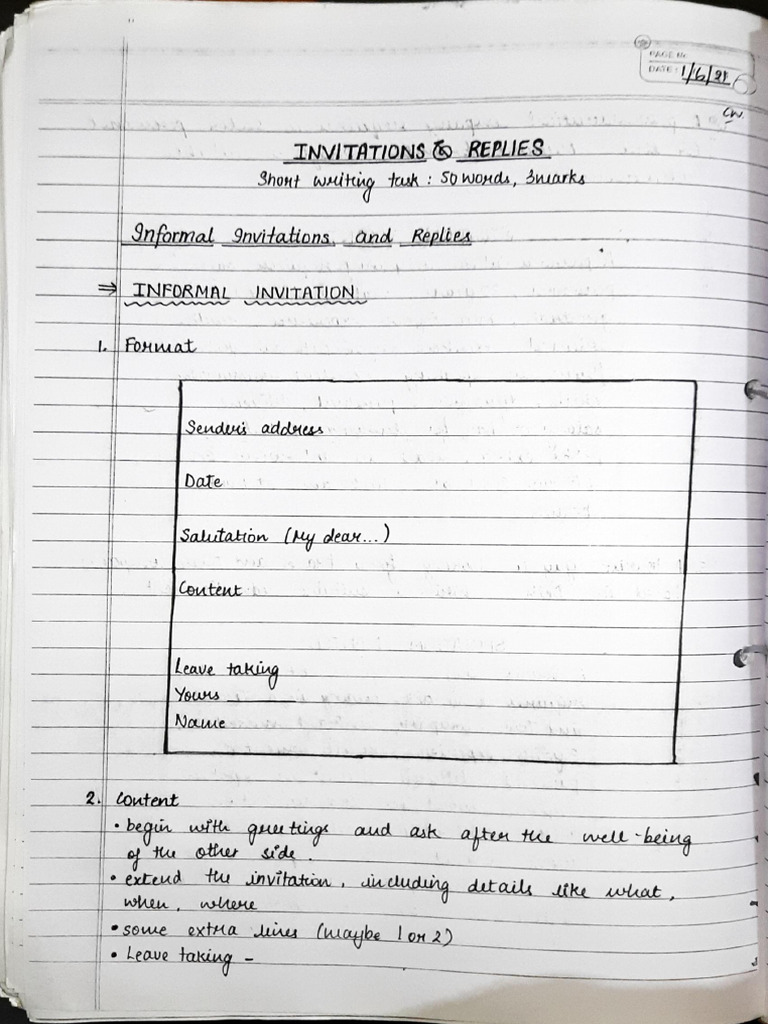 PAGE No.
DATE: 1/6/21
CW.
INVITATIONS & REPLIES
Short writing task : 50 words, 3marks
Informal Invitations and Replies
⇒ INFORMAL INVITATION
1. Format
Sender's address
Date
Salutation (My dear...)
Content
Leave taking
Yours
Name
2. Content
• begin with greetings and ask after the well-being
of the other side.
• extend the invitation, including details like what,
when, where
• some extra lines (maybe 1 or 2)
• Leave taking -